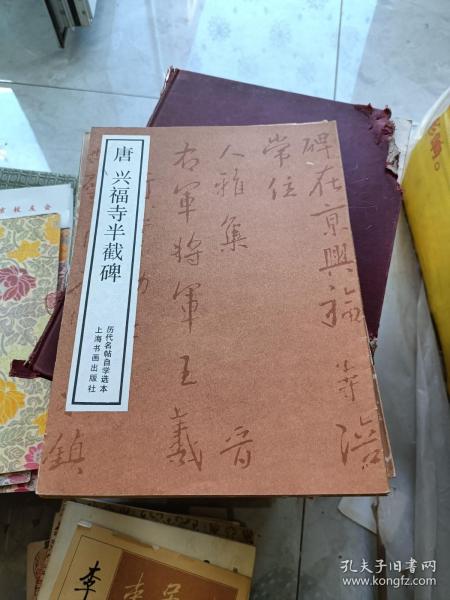 唐 兴福寺半截碑
历代名帖自学选本
上海书画出版社
碑在京興福寺陪
常住
人雅集 晋
右軍將軍王羲
鎮
市校友会
李
孔夫子旧书网
www.kongfz.com